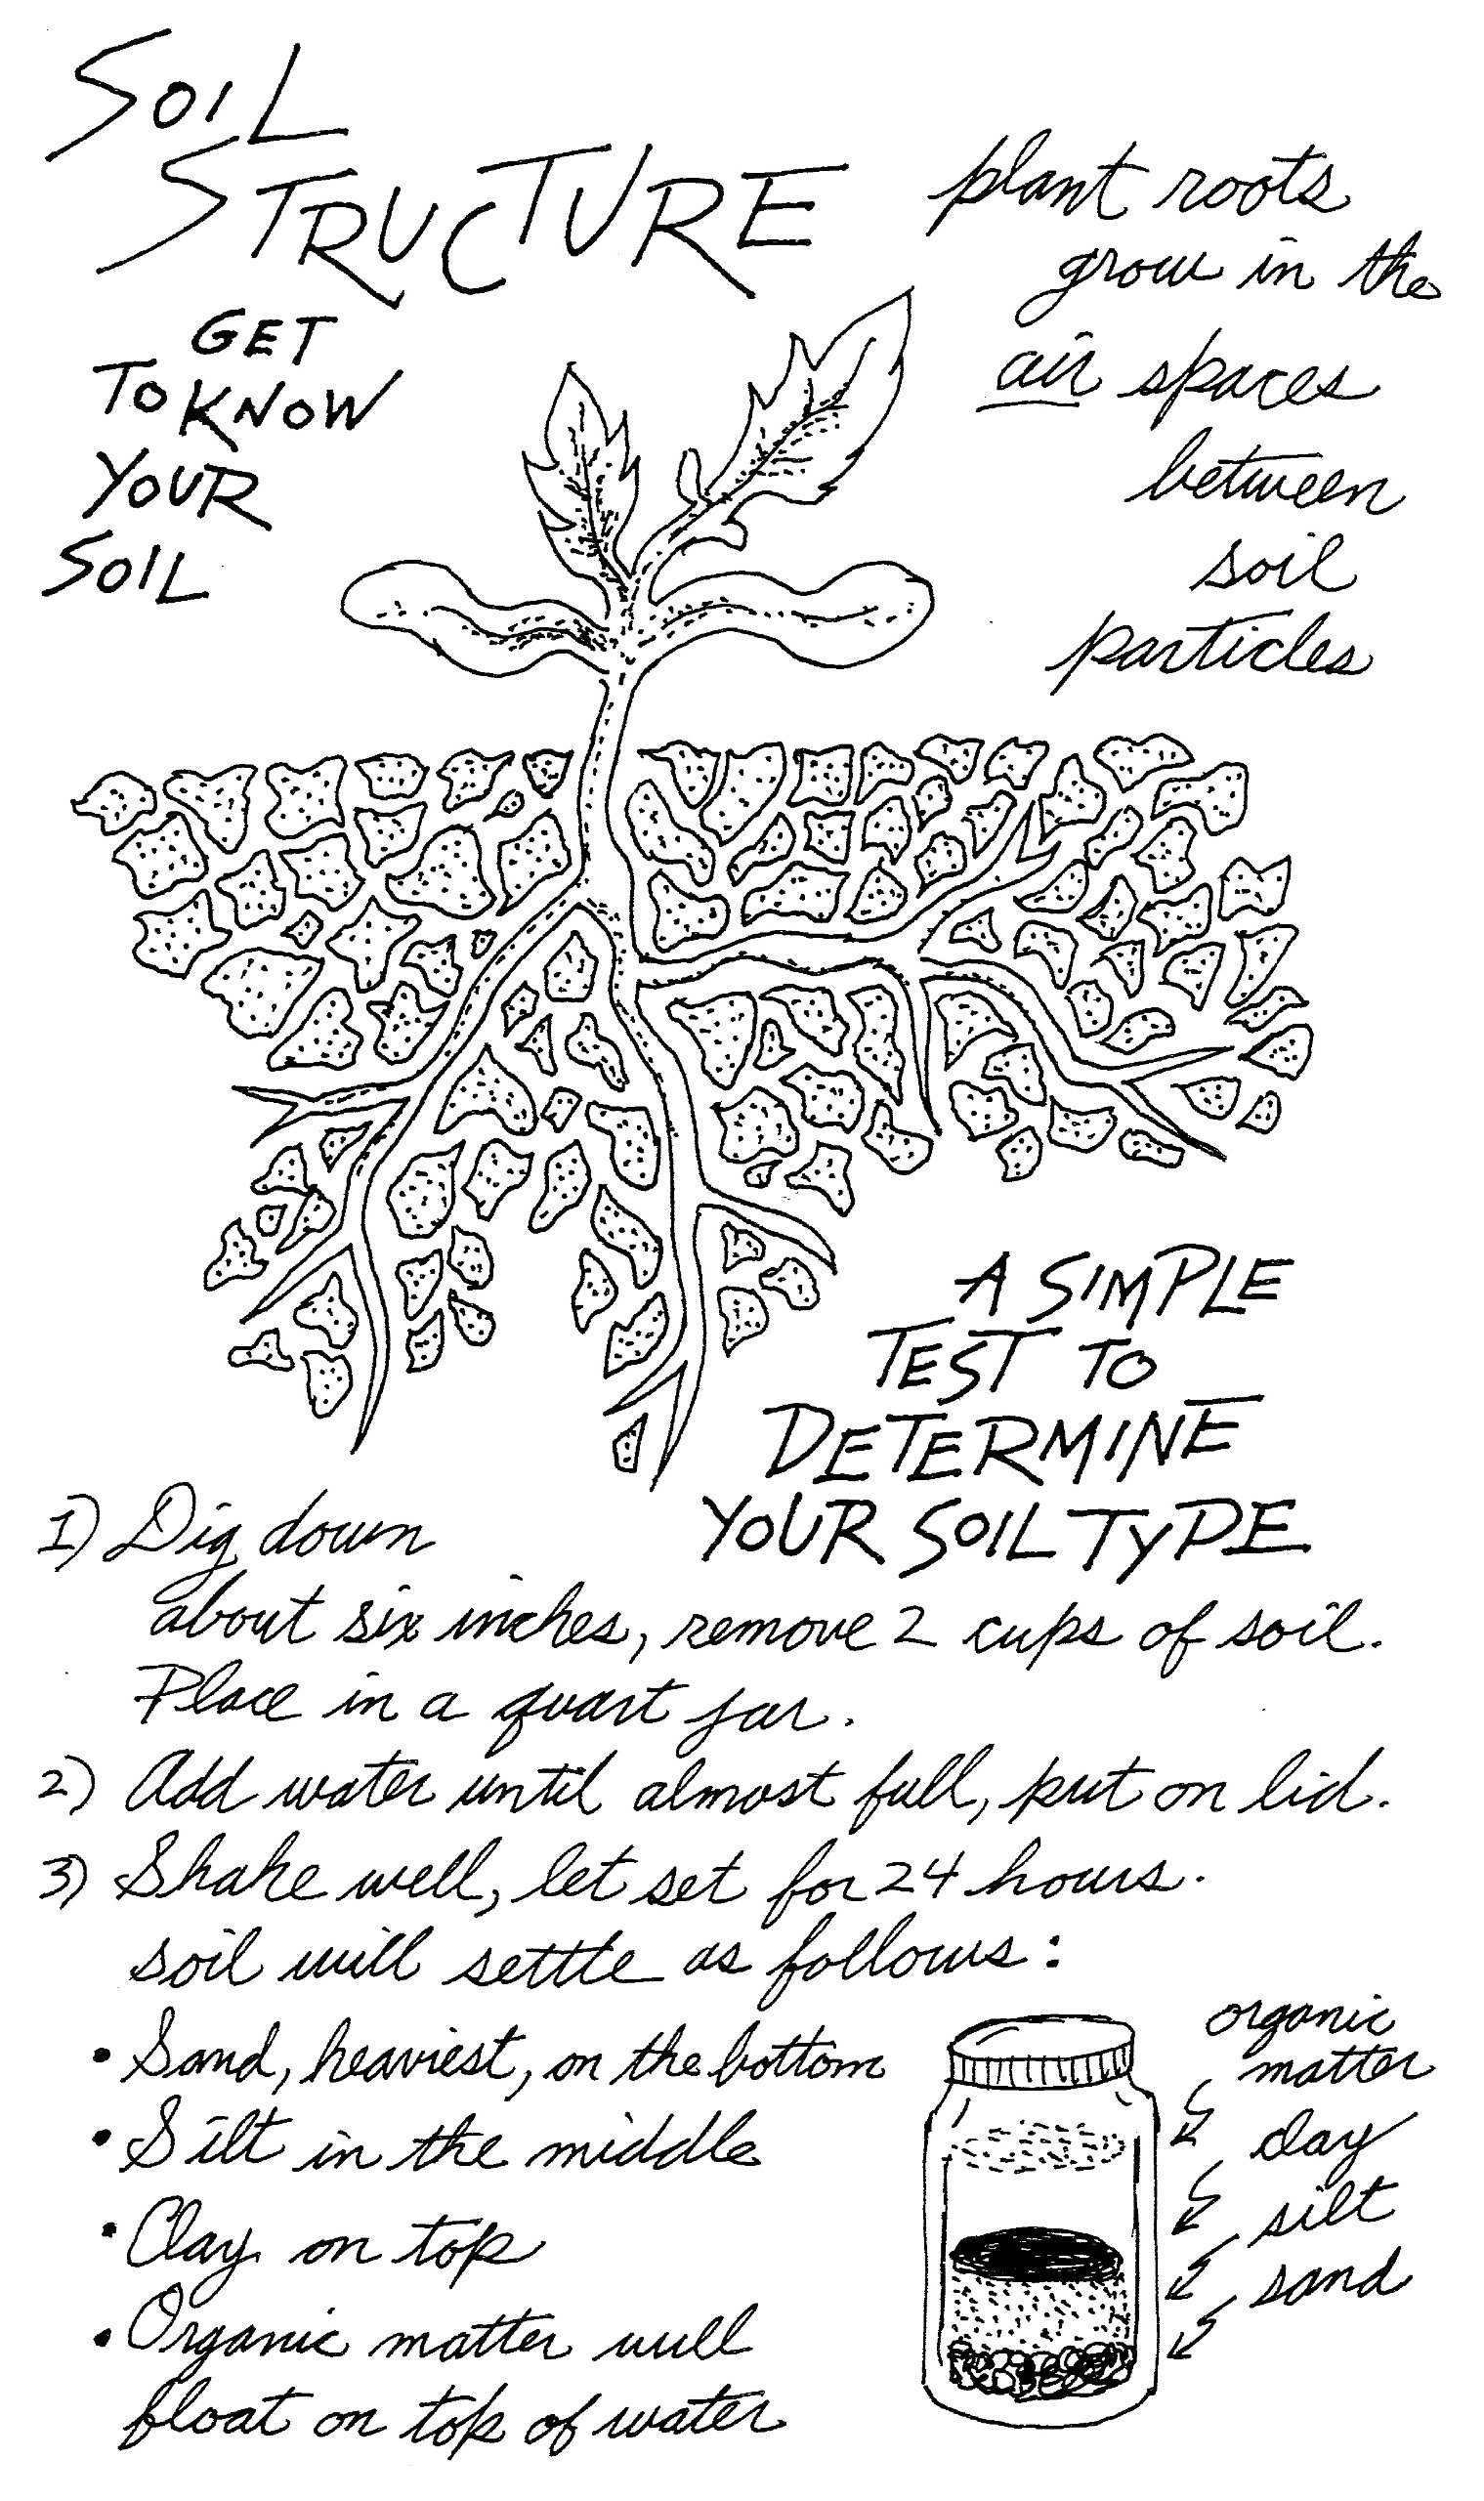 SOIL
STRUCTURE
GET
TO KNOW
YOUR
SOIL
plant roots
grow in the
air spaces
between
soil
particles
A SIMPLE
TEST TO
DETERMINE
YOUR SOIL TYPE
1) Dig down
about six inches, remove 2 cups of soil.
Place in a quart jar.
2) Add water until almost full, put on lid.
3) Shake well, let set for 24 hours.
soil will settle as follows:
• Sand, heaviest, on the bottom
• Silt in the middle
• Clay on top
• Organic matter will
float on top of water
organic
matter
clay
silt
sand